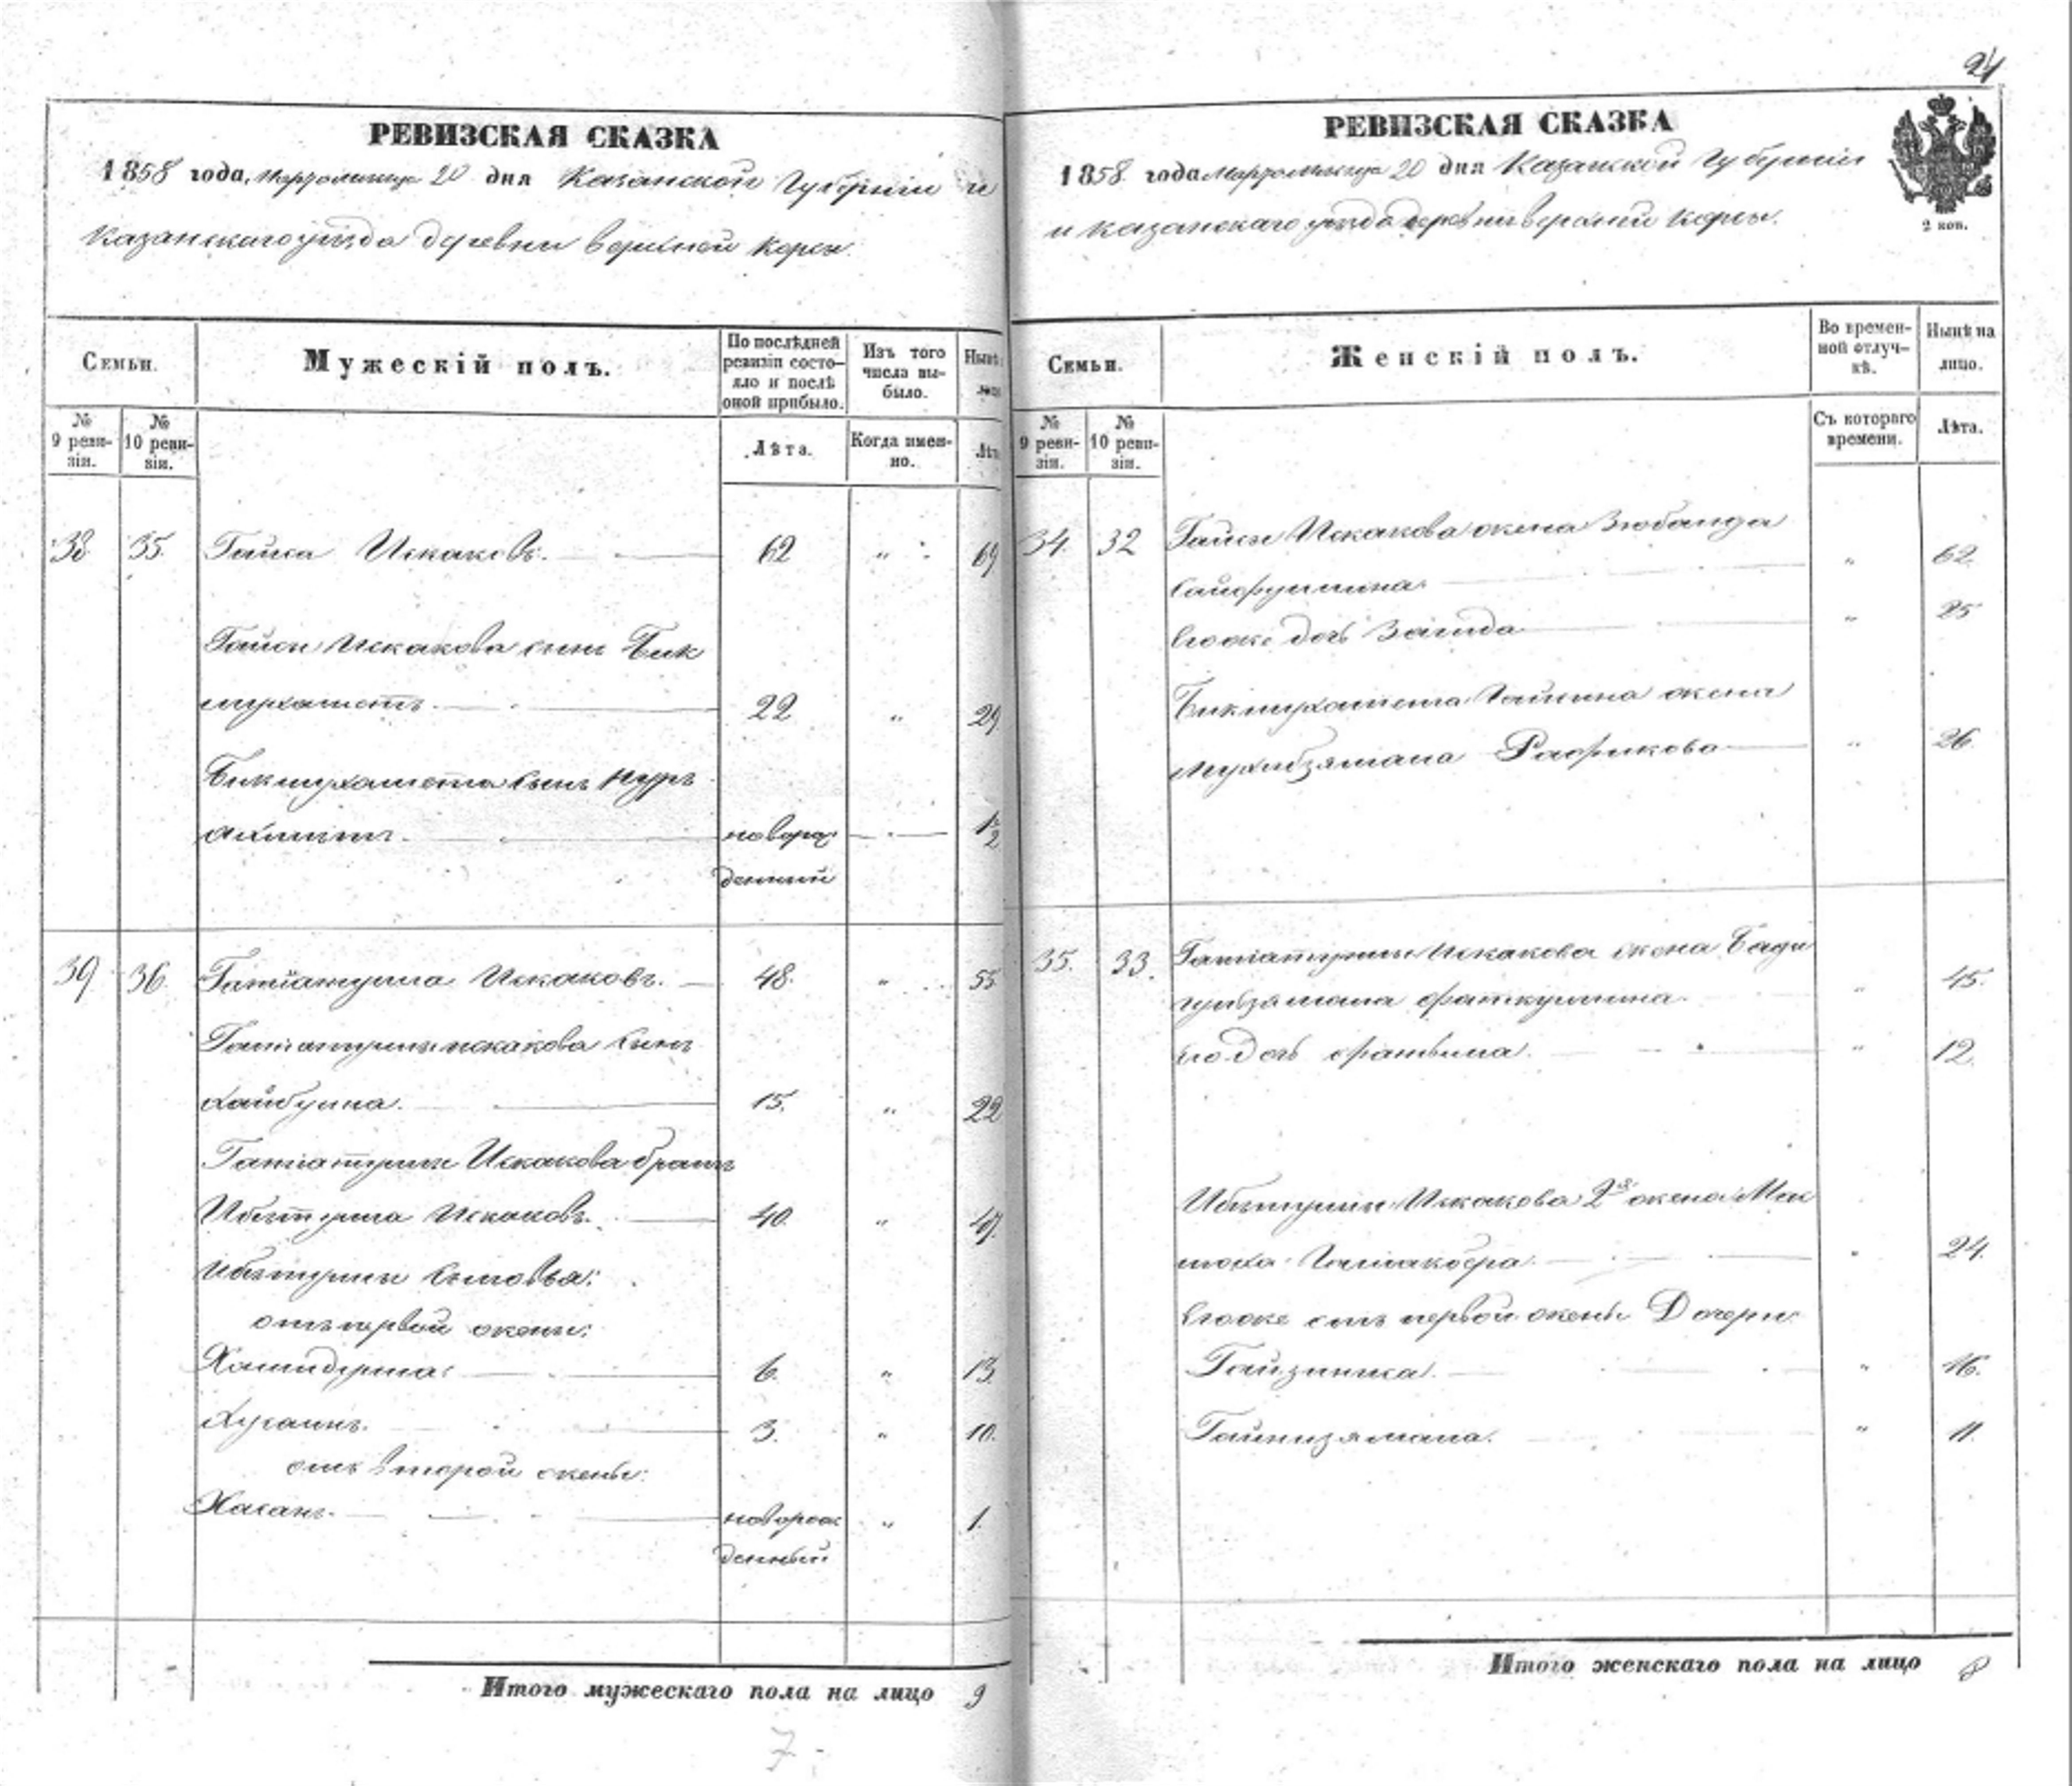 24
РЕВИЗСКАЯ СКАЗКА
1858 года, марта месяца 20 дня Казанской Губерніи и
Казанскаго уѣзда деревни Верхней Корсы.
Семьи.
Мужескій полъ.
По послѣдней ревизіи состояло и послѣ оной прибыло.
Изъ того числа выбыло.
Нынѣ
№ 9 ревизіи.
№ 10 ревизіи.
Лѣта.
Когда именно.
Лѣта
38 35. Гайса Искаковъ. 62 " 69
Гайсы Искакова сынъ Бик
мухаметъ. 22 " 29.
Бикмухамета сынъ Нург
ахметъ. новорож 1/2
денный
39 36. Гатіатулла Искаковъ. 48. " 55
Гатіатуллы Искакова сынъ
Хайбулла. 15. " 22
Гатіатуллы Искакова братъ
Ибятулла Искаковъ. 40. " 47.
Ибятуллы сыновья:
отъ первой жены:
Хамидулла: 6. " 13.
Хусаинъ. 3. " 10.
отъ второй жены:
Хасанъ. новорож " 1.
денный
Итого мужескаго пола на лицо 9
7
РЕВИЗСКАЯ СКАЗКА
1858 года марта месяца 20 дня Казанской Губерніи
и Казанскаго уѣзда деревни Верхней Корсы.
2 коп.
Семьи.
Женскій полъ.
Во временной отлучкѣ.
Нынѣ на лицо.
№ 9 ревизіи.
№ 10 ревизіи.
Съ котораго времени.
Лѣта.
34. 32 Гайсы Искакова жена Зюбайда
Сайфуллина. " 62.
Егоже дочь Заида " 25
Бикмухамета Гайсина жена
Мухибзямала Рафикова " 26.
35. 33. Гатіатуллы Искакова жена Бади
гульзямала Фаткуллина. " 45.
Его дочь Фатыма. " 12.
Ибятуллы Искакова 2я жена Мак
" 24.
Егоже отъ первой жены Дочери
" 16.
Гайнизямала. " 11.
Итого женскаго пола на лицо 8